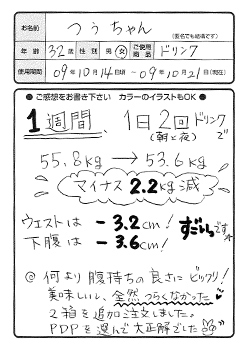 お名前 つぅちゃん
(匿名でも結構です)
年齢 32歳 性別 男・女 ご使用商品 ドリンク
使用期間 09年10月14日頃 〜 09年10月21日(現在)
● ご感想をお書き下さい カラーのイラストもOK ●
1週間、1日2回ドリンクで
(朝と夜)
55.8kg → 53.6kg
マイナス2.2kg減
ウエストは -3.2cm!
下腹は -3.6cm!
すごいっです
@ 何より腹持ちの良さにビックリ!
美味しいし、全然つらくなかった
2箱を追加注文しました。
PDPを選んで大正解でした